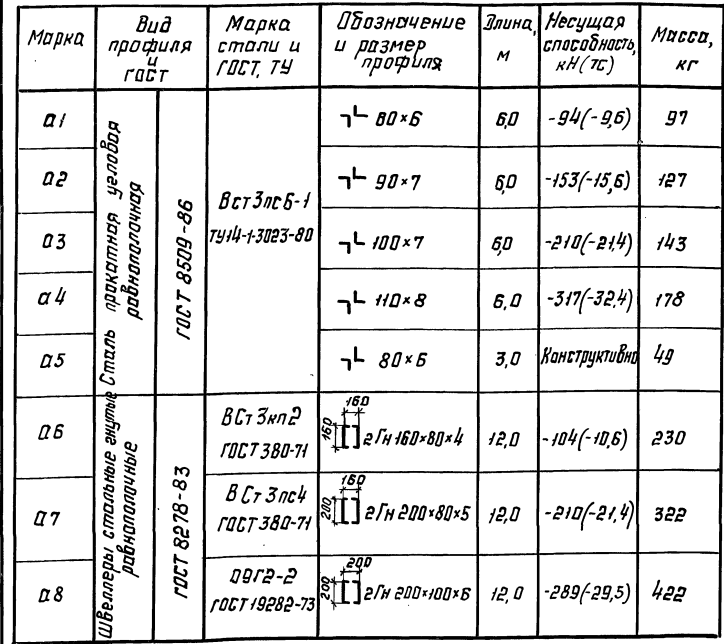 Марка
Вид профиля и ГОСТ
Марка стали и ГОСТ, ТУ
Обозначение и размер профиля
Длина, м
Несущая способность, кН(тс)
Масса, кг
Сталь прокатная угловая равнополочная
ГОСТ 8509-86
ВСт3пс6-1
ТУ14-1-3023-80
а1 ┐└ 80×6 6,0 -94(-9,6) 97
а2 ┐└ 90×7 6,0 -153(-15,6) 127
а3 ┐└ 100×7 6,0 -210(-21,4) 143
а4 ┐└ 110×8 6,0 -317(-32,4) 178
а5 ┐└ 80×6 3,0 Конструктивно 49
Швеллеры стальные гнутые равнополочные
ГОСТ 8278-83
а6 ВСт3кп2 ГОСТ 380-71 160 160 2Гн 160×80×4 12,0 -104(-10,6) 230
а7 ВСт3пс4 ГОСТ 380-71 160 200 2Гн 200×80×5 12,0 -210(-21,4) 322
а8 09Г2-2 ГОСТ 19282-73 200 200 2Гн 200×100×6 12,0 -289(-29,5) 422